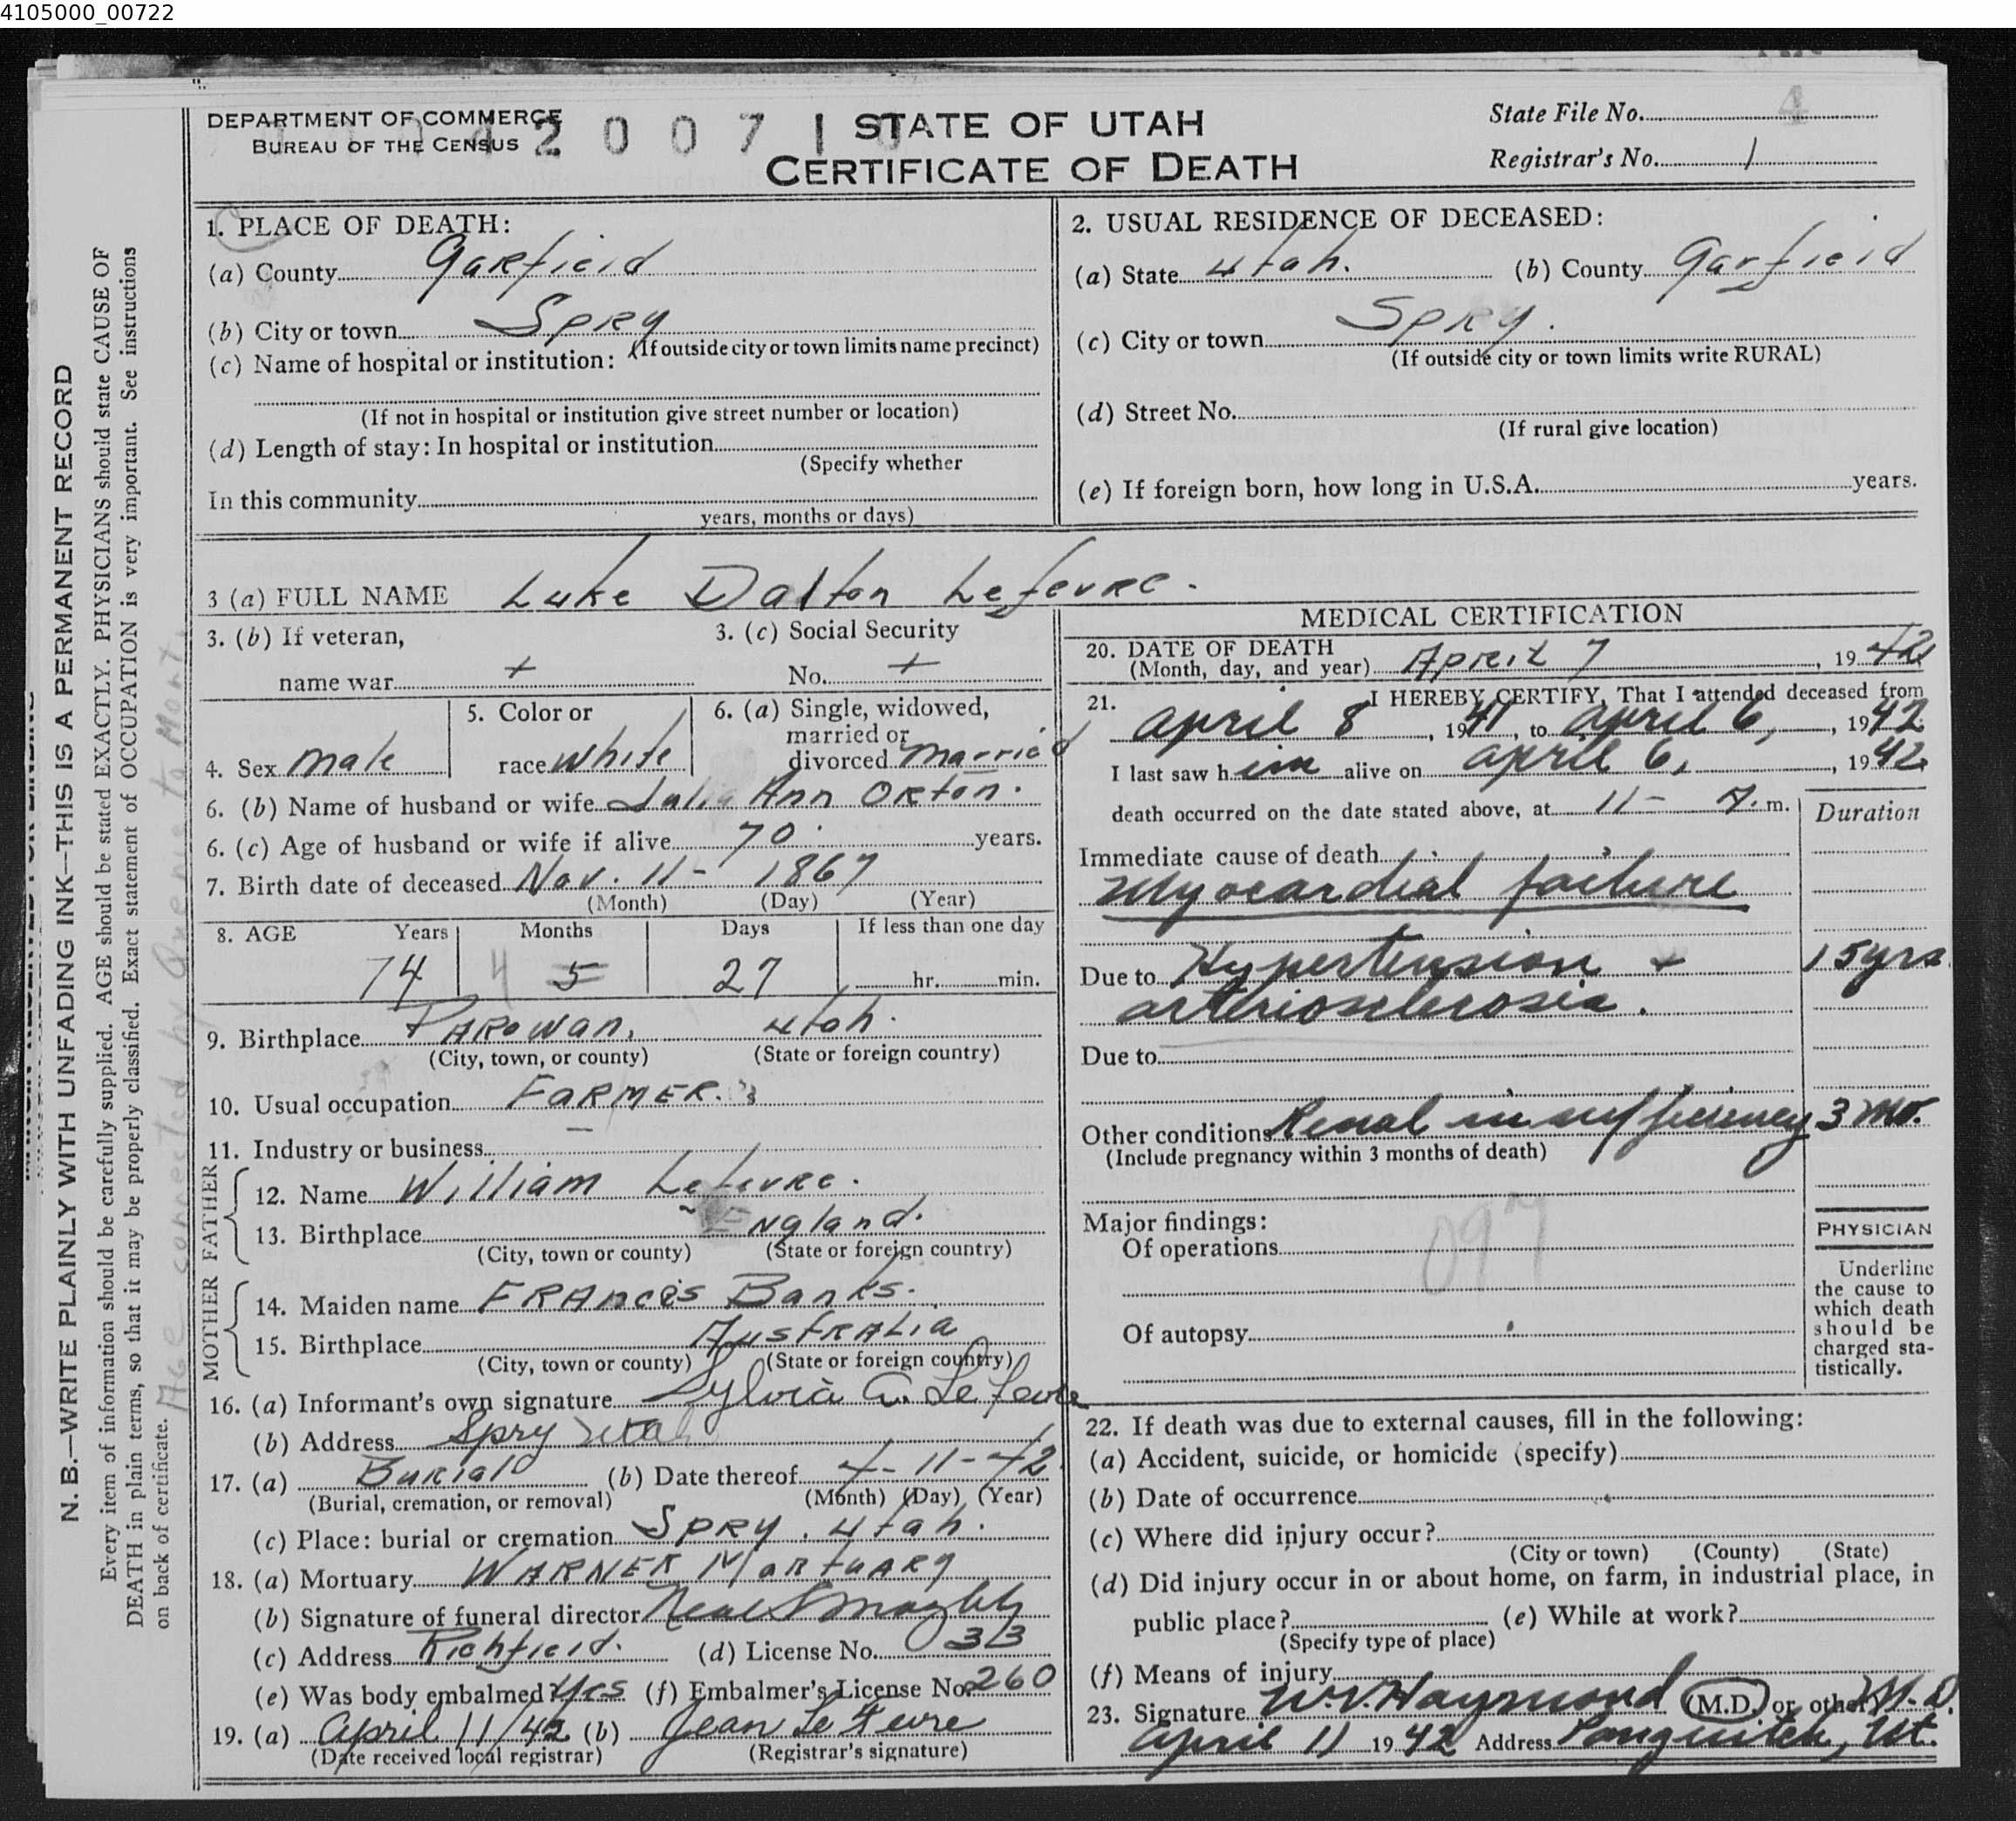 4105000_00722
DEPARTMENT OF COMMERCE
BUREAU OF THE CENSUS
42 0 0 7 1 0
STATE OF UTAH
CERTIFICATE OF DEATH
State File No. 4
Registrar's No. 1
N. B.—WRITE PLAINLY WITH UNFADING INK—THIS IS A PERMANENT RECORD
Every item of information should be carefully supplied. AGE should be stated EXACTLY. PHYSICIANS should state CAUSE OF
DEATH in plain terms, so that it may be properly classified. Exact statement of OCCUPATION is very important. See instructions
on back of certificate.
Age corrected by
1. PLACE OF DEATH:
(a) County Garfield
(b) City or town Spry
(If outside city or town limits name precinct)
(c) Name of hospital or institution:
(If not in hospital or institution give street number or location)
(d) Length of stay: In hospital or institution
(Specify whether
In this community
years, months or days)
2. USUAL RESIDENCE OF DECEASED:
(a) State Utah. (b) County Garfield
(c) City or town Spry.
(If outside city or town limits write RURAL)
(d) Street No.
(If rural give location)
(e) If foreign born, how long in U.S.A. years.
3 (a) FULL NAME Luke Dalton Lefevre.
3. (b) If veteran,
name war +
3. (c) Social Security
No. +
4. Sex Male
5. Color or
race White
6. (a) Single, widowed,
married or
divorced Married
6. (b) Name of husband or wife Julia Ann Orton.
6. (c) Age of husband or wife if alive 70 years.
7. Birth date of deceased Nov. 11- 1867
(Month) (Day) (Year)
8. AGE Years Months Days If less than one day
74 4 5 27 hr. min.
9. Birthplace Parowan, Utah.
(City, town, or county) (State or foreign country)
10. Usual occupation Farmer.
11. Industry or business
FATHER
12. Name William Lefevre.
13. Birthplace England.
(City, town or county) (State or foreign country)
MOTHER
14. Maiden name Frances Banks.
15. Birthplace Australia
(City, town or county) (State or foreign country)
16. (a) Informant's own signature Sylvia A. LeFevre
(b) Address Spry Utah
17. (a) Burial (b) Date thereof 4-11-42
(Burial, cremation, or removal) (Month) (Day) (Year)
(c) Place: burial or cremation Spry, Utah.
18. (a) Mortuary Warner Mortuary
(b) Signature of funeral director Neal S
(c) Address Richfield. (d) License No. 313
(e) Was body embalmed Yes (f) Embalmer's License No. 260
19. (a) April 11/42 (b) Jean Le Fevre
(Date received local registrar) (Registrar's signature)
MEDICAL CERTIFICATION
20. DATE OF DEATH
(Month, day, and year) April 7, 1942
21. I HEREBY CERTIFY, That I attended deceased from
April 8, 1941, to April 6, 1942
I last saw him alive on April 6, 1942
death occurred on the date stated above, at 11- A. m.
Duration
Immediate cause of death
Myocardial failure
Due to Hypertension + 15 yrs
arteriosclerosis.
Due to
Other conditions Renal insufficiency 3 mo.
(Include pregnancy within 3 months of death)
Major findings:
Of operations
097
Of autopsy
PHYSICIAN
Underline
the cause to
which death
should be
charged sta-
tistically.
22. If death was due to external causes, fill in the following:
(a) Accident, suicide, or homicide (specify)
(b) Date of occurrence
(c) Where did injury occur?
(City or town) (County) (State)
(d) Did injury occur in or about home, on farm, in industrial place, in
public place? (e) While at work?
(Specify type of place)
(f) Means of injury
23. Signature W.V. Haymond (M.D. or other) M.D.
April 11 1942 Address Panguitch, Ut.